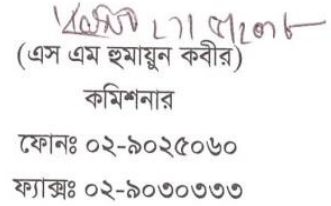 (এস এম হুমায়ুন কবীর)
কমিশনার
ফোনঃ ০২-৯০২৫০৬০
ফ্যাক্সঃ ০২-৯০৩০৩৩৩